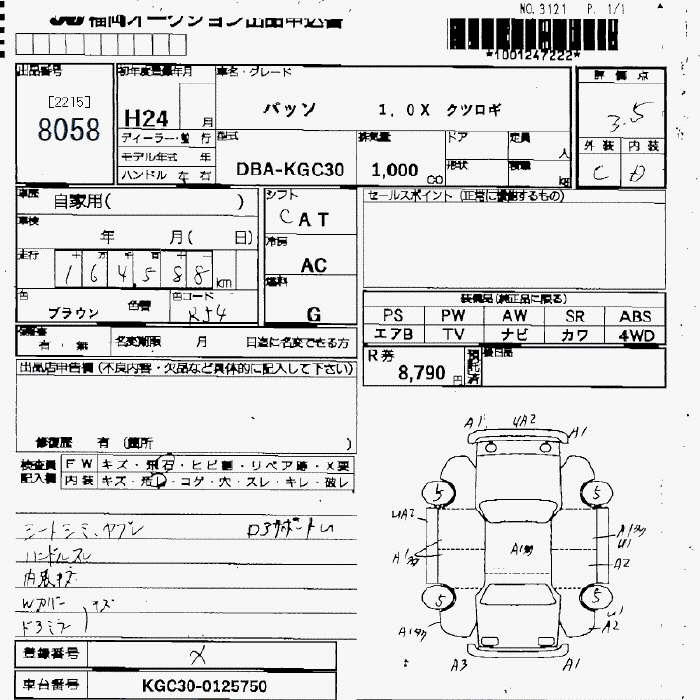 NO. 3121 P. 1/1
JU 福岡オークション出品申込書
*1001247222*
出品番号
[2215]
8058
初年度登録年月
H24 月
ディーラー・並 行
モデル年式 年
ハンドル 左 右
車名・グレード
パッソ 1.0X クツロギ
型式
DBA-KGC30
排気量
1,000 CC
ドア
定員
人
形状
積載
kg
評 価 点
3.5
外 装 内 装
C D
車歴
自家用( )
車検
年 月( 日)
走行
十 万 千 百 十
1 6 4,5 8 8 km
色
ブラウン
色替
色コード
R54
シフト
C A T
冷房
AC
燃料
G
セールスポイント (正常に機能するもの)
装備品(純正品に限る)
PS PW AW SR ABS
エアB TV ナビ カワ 4WD
保証書
有・無
名変期限 月 日迄に名変できる方
R券
8,790 円
預託済
後日品
出品店申告欄 (不良内容・欠品など具体的に記入して下さい)
修復歴 有 (箇所 )
検査員
記入欄
F W キズ・飛石・ヒビ割・リペア跡・X要
内装 キズ・汚レ・コゲ・穴・スレ・キレ・破レ
シートシミ、ヤブレ
ハンドルスレ
内張キズ
Wカバー
ドミラ キズ
登録番号
X
車台番号 KGC30-0125750
A1 UA2 A1
5 5
UA2
A1タ
A1タ
A1タ
U1
A2
5 5
A1タ
U1
A2
A3 A1